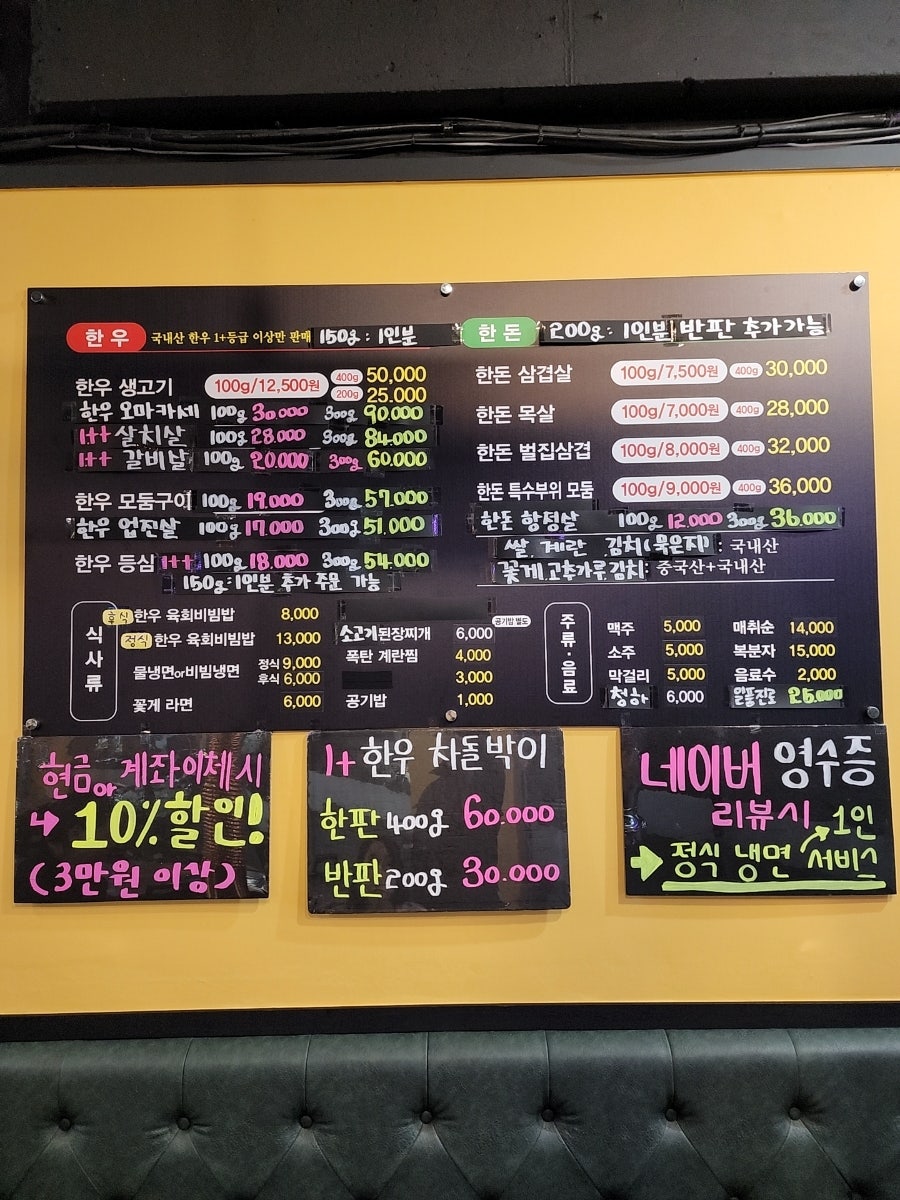 한우 국내산 한우 1+등급 이상만 판매 150g : 1인분
한우 생고기 100g/12,500원 400g 50,000
200g 25,000
한우 오마카세 100g 30.000 300g 90.000
1++ 살치살 100g 28.000 300g 84.000
1++ 갈비살 100g 20.000 300g 60.000
한우 모둠구이 100g 19.000 300g 57.000
한우 업진살 100g 17.000 300g 51.000
한우 등심 1++ 100g 18.000 300g 54.000
150g:1인분 추가 주문 가능
한돈 200g : 1인분 반판 추가가능
한돈 삼겹살 100g/7,500원 400g 30,000
한돈 목살 100g/7,000원 400g 28,000
한돈 벌집삼겹 100g/8,000원 400g 32,000
한돈 특수부위 모둠 100g/9,000원 400g 36,000
한돈 항정살 100g 12.000 300g 36.000
쌀, 계란 김치(묵은지) : 국내산
꽃게, 고추가루김치: 중국산+국내산
식사류
후식 한우 육회비빔밥 8,000
정식 한우 육회비빔밥 13,000
물냉면or비빔냉면 정식 9,000
후식 6,000
꽃게 라면 6,000
공기밥 별도
소고기된장찌개 6,000
폭탄 계란찜 4,000
3,000
공기밥 1,000
주류·음료
맥주 5,000
소주 5,000
막걸리 5,000
청하 6,000
매취순 14,000
복분자 15,000
음료수 2,000
일품진로 25.000
현금or계좌이체시
→ 10% 할인!
(3만원 이상)
1+ 한우 차돌박이
한판 400g 60.000
반판 200g 30.000
네이버 영수증
리뷰시 1인
→ 정식 냉면 서비스